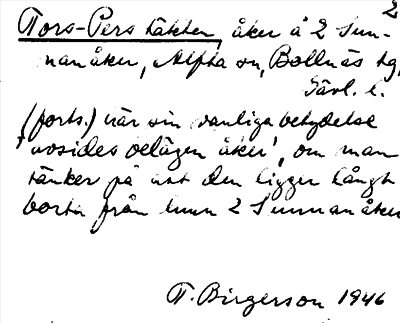 2
Tors-Pers täkten, åker å 2 Sun-
nanåker, Alfta sn, Bollnäs tg,
Gävl. l.
(forts.) här sin vanliga betydelse
'avsides belägen åker', om man
tänker på att den ligger långt
borta från hmn 2 Sunnanåker
T. Birgerson 1946